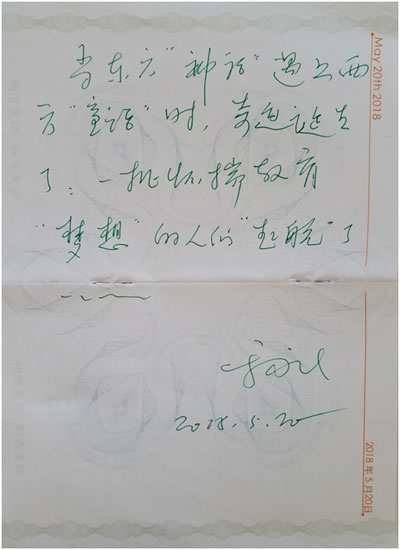 当东方“神话”遇上西
方“童话”时，奇迹诞生
了：一批怀揣教育
“梦想”的人们“起航”了
……
2018.5.20
May 20th 2018
2018年5月20日